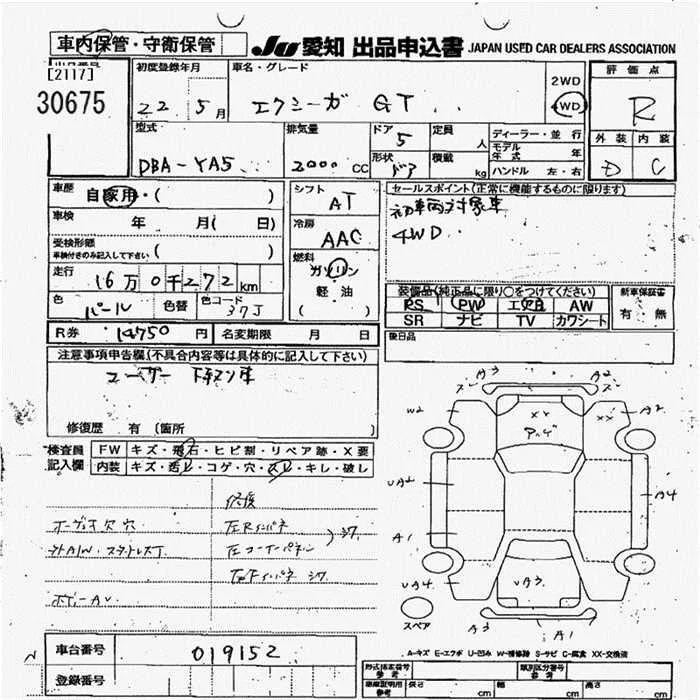 車内保管・守衛保管
JU 愛知 出品申込書 JAPAN USED CAR DEALERS ASSOCIATION
[2117]
30675
初度登録年月 車名・グレード 評価点
22 5月 エクシーガ GT 2WD 4WD R
型式 排気量 ドア 定員 ディーラー・並行 外装 内装
DBA-YA5 2000 CC 5 人 モデル年式 年 D C
形状 積載 kg ハンドル 左・右
車歴 自家用・( ) シフト AT セールスポイント(正常に機能するものに限ります)
車検 年 月( 日) 冷房 AAC
4WD
受検形態 車検付きのみ記入して下さい ( )
燃料 ガソリン 軽油 ( )
走行 16万0千272km
装備品(純正品に限り○をつけてください) 新車保証書
色 パール 色替 色コード 37J PS PW エアB AW 有 無
SR ナビ TV カワシート
R券 14750円 名変期限 月 日 後日品
注意事項申告欄(不具合内容等は具体的に記入して下さい)
ユーザー 下取り車
修復歴 有(箇所 )
検査員記入欄 FW キズ・飛石・ヒビ割・リペア跡・X要
内装 キズ・汚レ・コゲ・穴・スレ・キレ・破レ
修復
オーディオ欠 穴
ボディーAU
A3 A2
W2 XX XX A2
UA2 A4
A1
UA4 UA3
スペア A3 A1
A-キズ E-エクボ U-凹み W-補修跡 S-サビ C-腐食 XX-交換済
車台番号 019152
登録番号
形式指定番号 参考 類別区分番号 参考
車庫証明用 参考 長さ cm 幅 cm 高さ cm